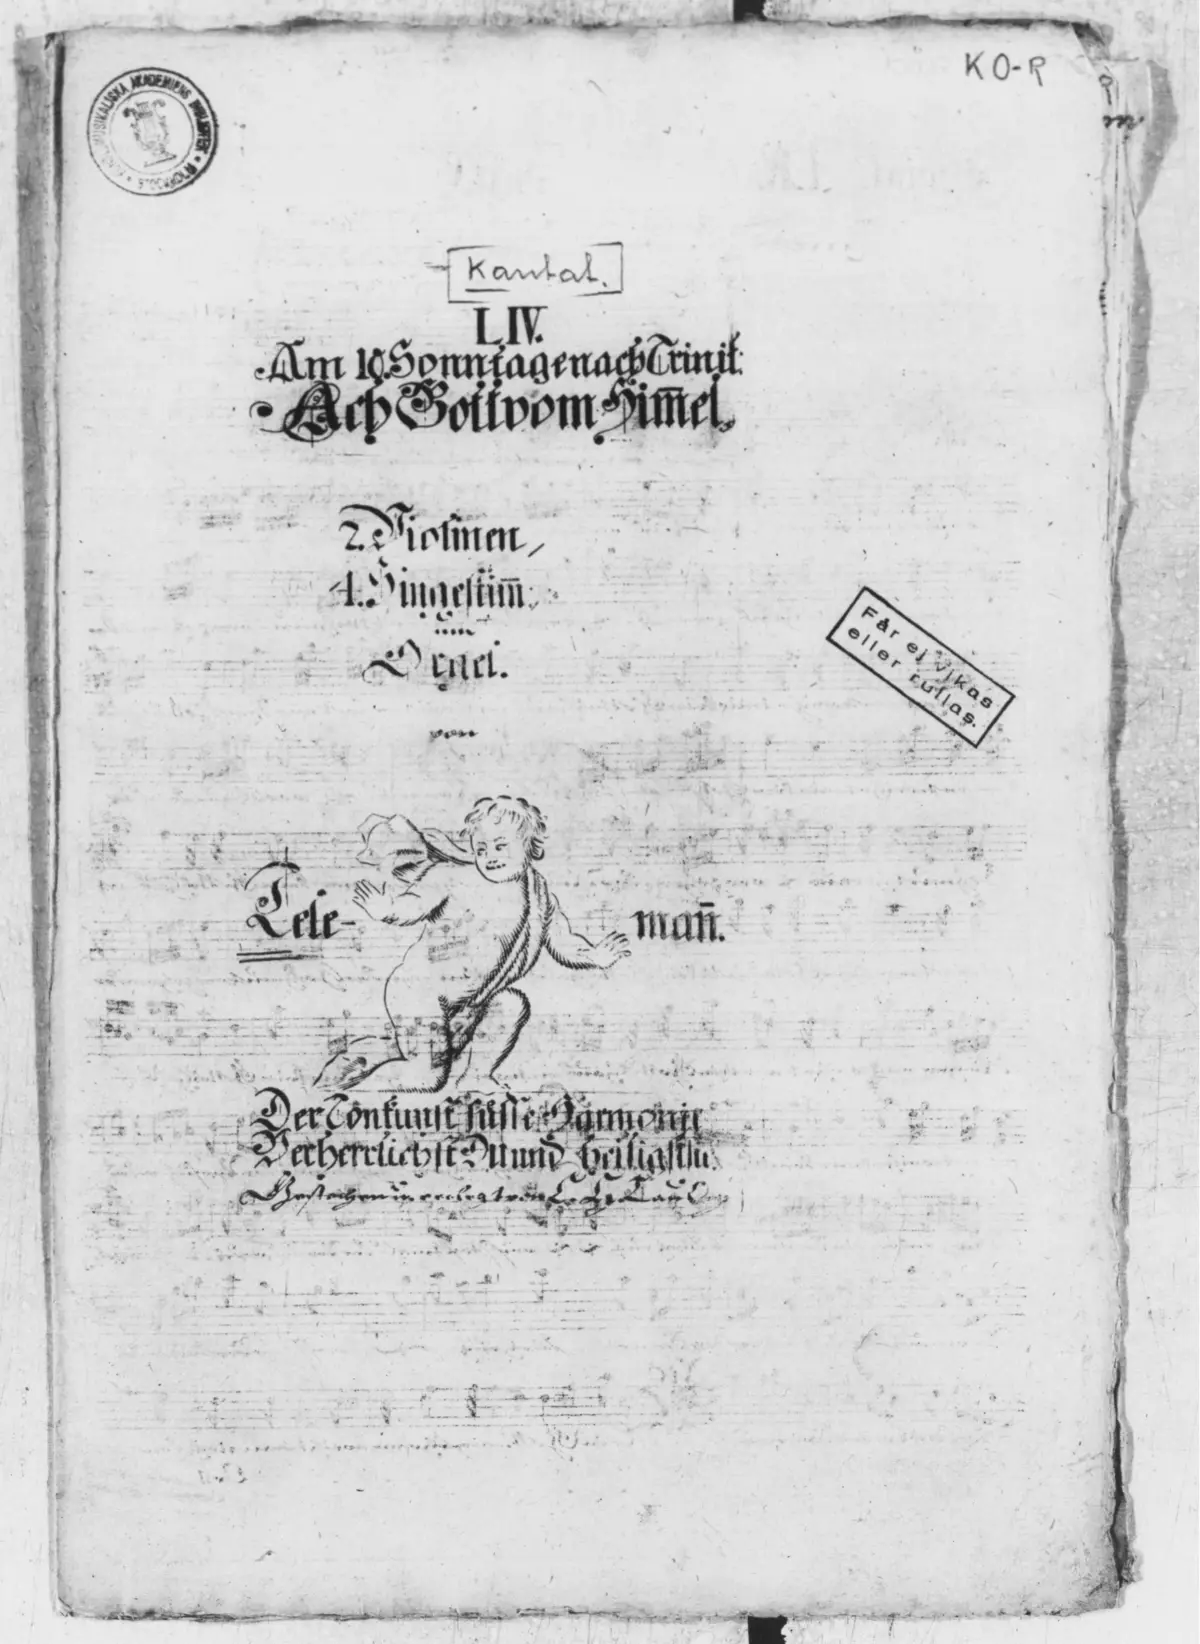 KO-R
KUNGL. MUSIKALISKA AKADEMIENS BIBLIOTEK * STOCKHOLM *
Kantat.
LIV.
Am 10. Sonntage nach Trinit:
Ach Gott vom Him̅el,
2. Violinen,
4. Singestim̅:
und
Orgel.
von
Får ej vikas
eller rullas.
Tele- man̅.
Der Tonkunst süsse Harmonie
Verherrlichst Du und heiligst sie.
Gestochen verlegt von